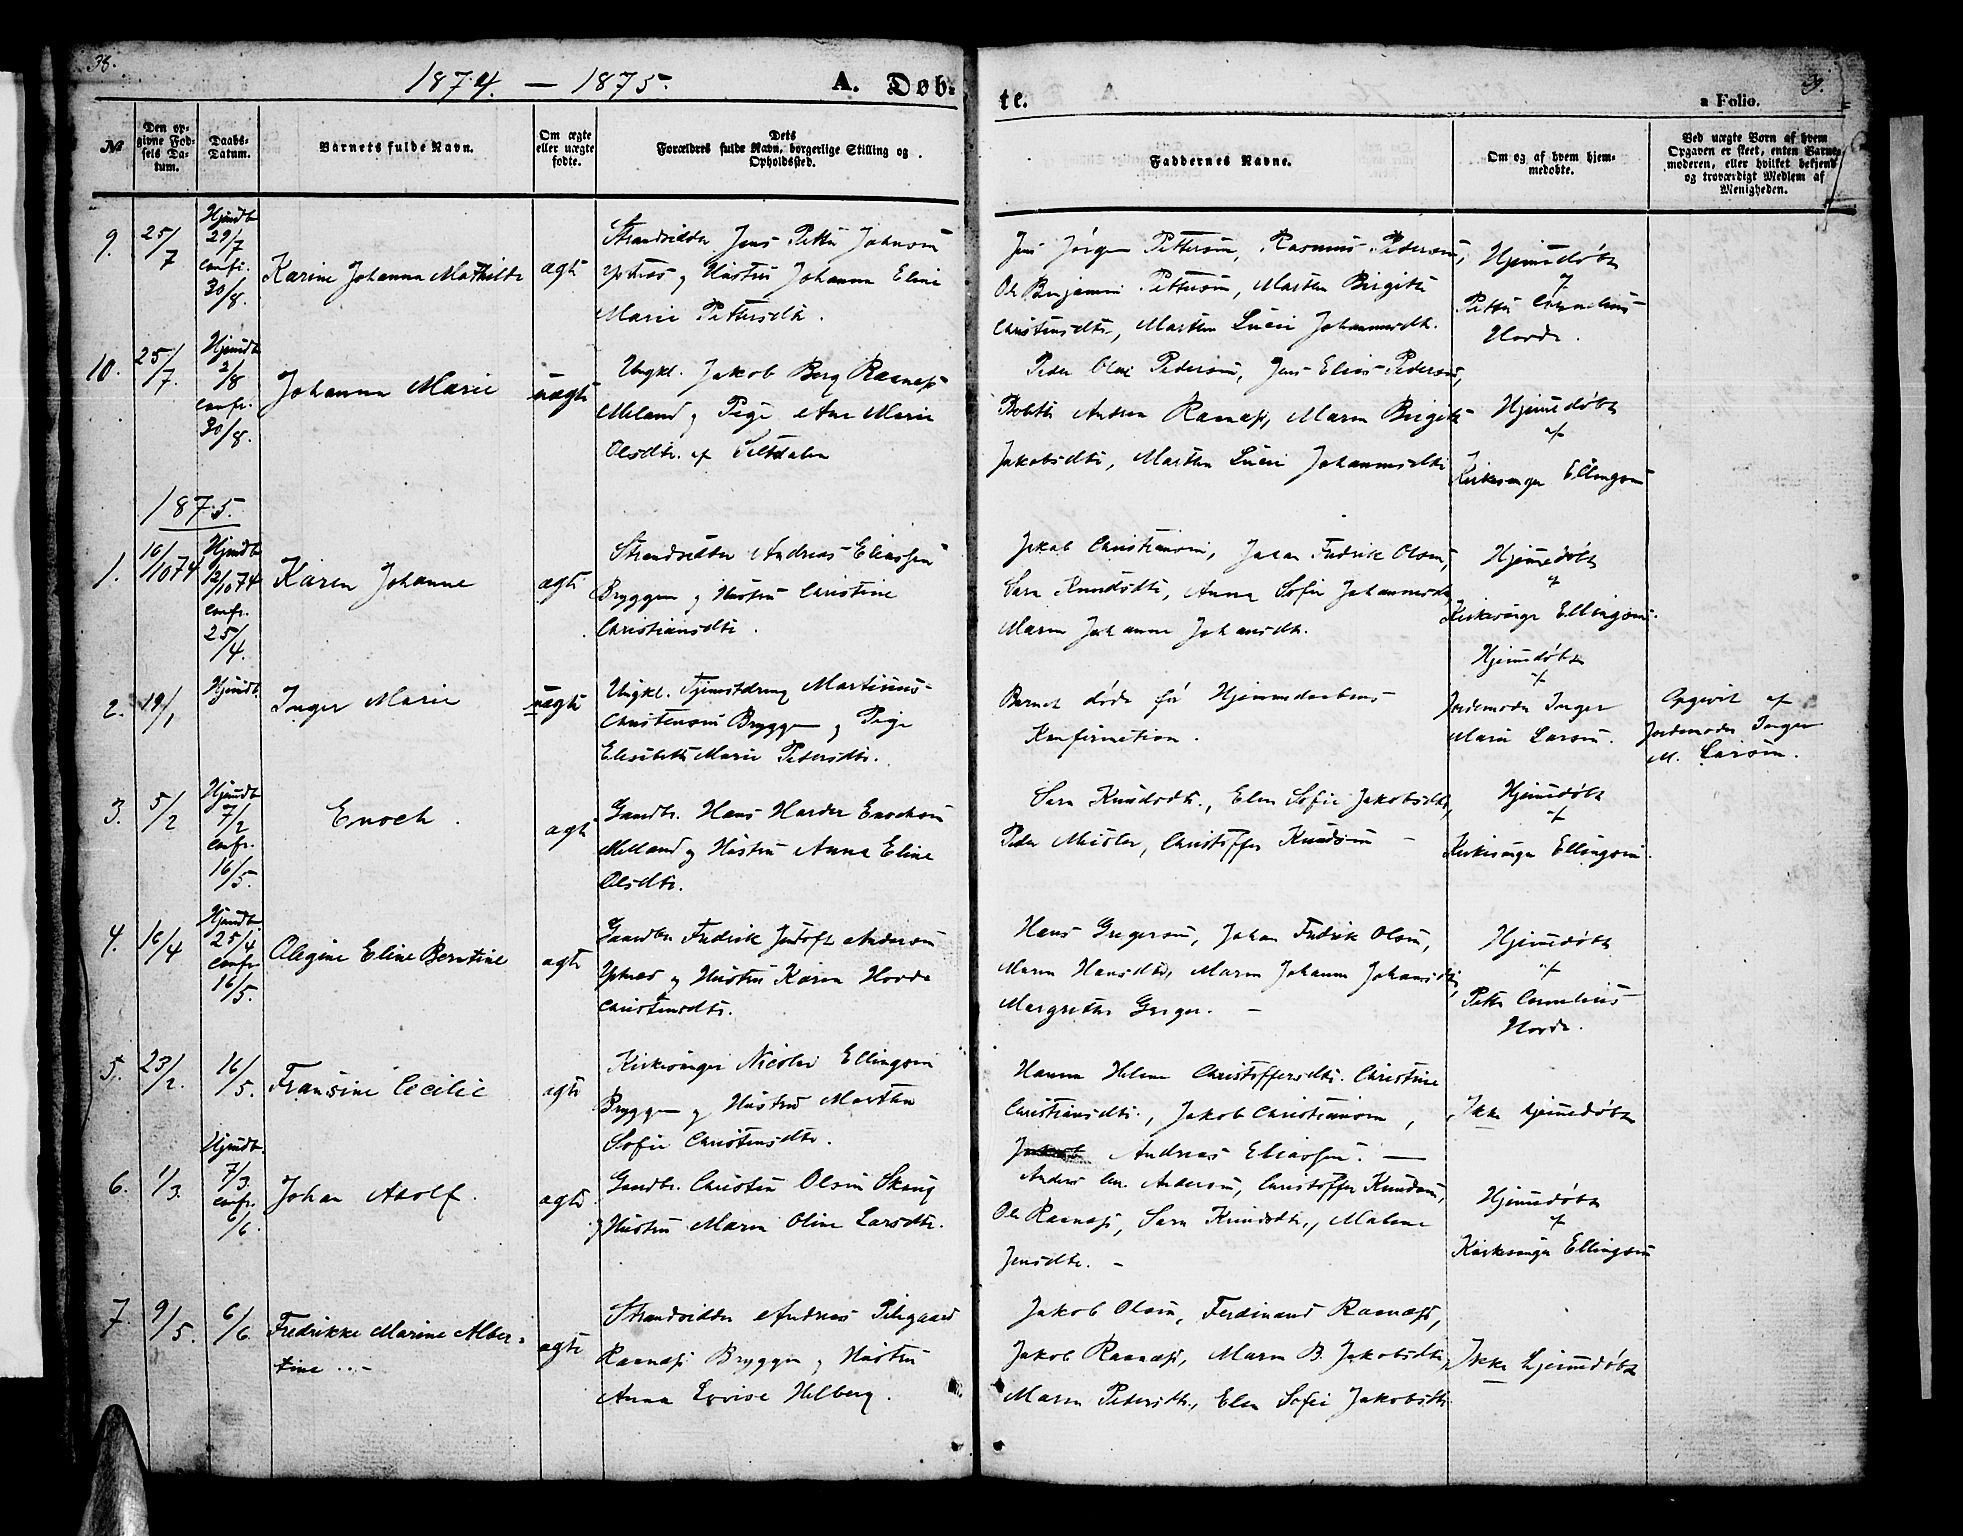 38.
1874. — 1875.
A. Døb-
te.
a Folio.
39.
№
Den op-
givne Fød-
sels Da-
tum.
Daabs-
Datum.
Barnets fulde Navn.
Om ægte
eller uægte
fødte.
Dets
Forældres fulde Navn, borgerlige Stilling og
Opholdssted.
Faddernes Navne.
Om og af hvem hjem-
medøbte.
Ved uægte Børn af hvem
Opgaven er skeet, enten Barne-
moderen, eller hvilket bekjendt
og troværdigt Medlem af
Menigheden.
9.
25/7
Hjmdb.
29/7
Confr.
30/8.
Karine Johanna Mathilde
ægte
Strandsidder Jens Petter Johnsen
og Hustru Johanna Eline
Marie Pettersdtr.
Jens Jørgen Pettersen, Rasmus Pedersen,
Ole Benjamin Pettersen, Marthe Birgitte
Christensdtr, Marthe Lucie Johannesdtr.
Hjemmedøbt
af
Petter Cornelius
Horde.
10.
25/7.
Hjemdb.
2/8
Confr.
30/8.
Johanna Marie
uægte
Ungkl. Jakob Berg
Meland og Pige Ane Marie
Olsdtr. af
Peder Olai Pedersen, Jens Elias Pedersen,
Andrea Maren Birgitte
Jakobsdtr, Marthe Lucie Johannesdtr
Hjemmedøbt
af
Kirkesanger Ellingsen
1875.
1.
16/10 74
Hjmdb.
12/10 74
Confr.
25/4.
Karen Johanne
ægte
Strandsidder Andreas Eliassen
Bryggen og Hustru Christine
Christiansdtr.
Jakob Christiansen, Johan Fredrik Olsen,
Sara Knudsdtr, Anna Sofie Johannesdtr,
Maren Johanne Johansdtr.
Hjemmedøbt
af
Kirkesanger Ellingsen.
2.
19/1
Hjmdb.
Inger Marie
uægte
Ungkl. Tjenestdreng Martinus
Christensen Bryggen og Pige
Elisabeth Marie Pedersdtr.
Barnet døde før Hjemmedaabens
Konfirmation.
Hjemmedøbt
af
Jordemoder Inger
Marie Larsen.
Opgivet af
Jordemoder Inger
M. Larsen.
3.
5/2
Hjemdb.
7/2
Confr.
16/5.
Enoch.
ægte
Gaardbr. Hans Harder Enochsen
Melland og Hustru Anna Eline
Olsdtr.
Sara Knudsdtr., Elen Sofie Jakobsdtr,
Peder Christoffer Knudsen —
Hjemmedøbt
af
Kirkesanger Ellingsen.
4.
16/4
Hjmdb.
25/4
Confr.
16/5.
Olegine Eline Berntine
ægte
Gaardbr Fredrik Andersen
og Hustru Karen Horde
Christensdtr.
Hans Gregersen, Johan Fredrik Olsen,
Maren Hansdtr, Maren Johanne Johansdtr,
Margrethe Greger. —
Hjemmedøbt
af
Petter Cornelius
Horde.
5.
23/2.
16/5.
Fransine Cecilie
ægte
Kirkesanger Nicolai Ellingsen
Bryggen og Hustru Marthe
Sofie Christensdtr.
Hanna Helene Christoffersdtr. Christine
Christiansdtr., Jakob Christiansen,
Andreas Eliassen. —
Ikke hjemmedøbt
6.
1/3.
Hjmdb.
7/3.
Confr.
6/6.
Johan Adolf.
ægte
Gaardbr. Christen Olsen
og Hustru Maren Oline Larsdtr.
Anders Andersen, Christoffer Knudsen,
Ole Sara Knudsdtr., Malene
Jensdtr. —
Hjemmedøbt
af
Kirkesanger Ellingsen
7.
9/5.
6/6.
Fredrikke Marine Alber-
tine
ægte
Strandsidder Andreas
Bryggen og Hustru
Anna Lovise Helberg.
Jakob Olsen, Ferdinand
Jakob Maren B. Jakobsdtr,
Maren Pedersdtr., Elen Sofie Jakobsdtr
Ikke hjemmedøbt